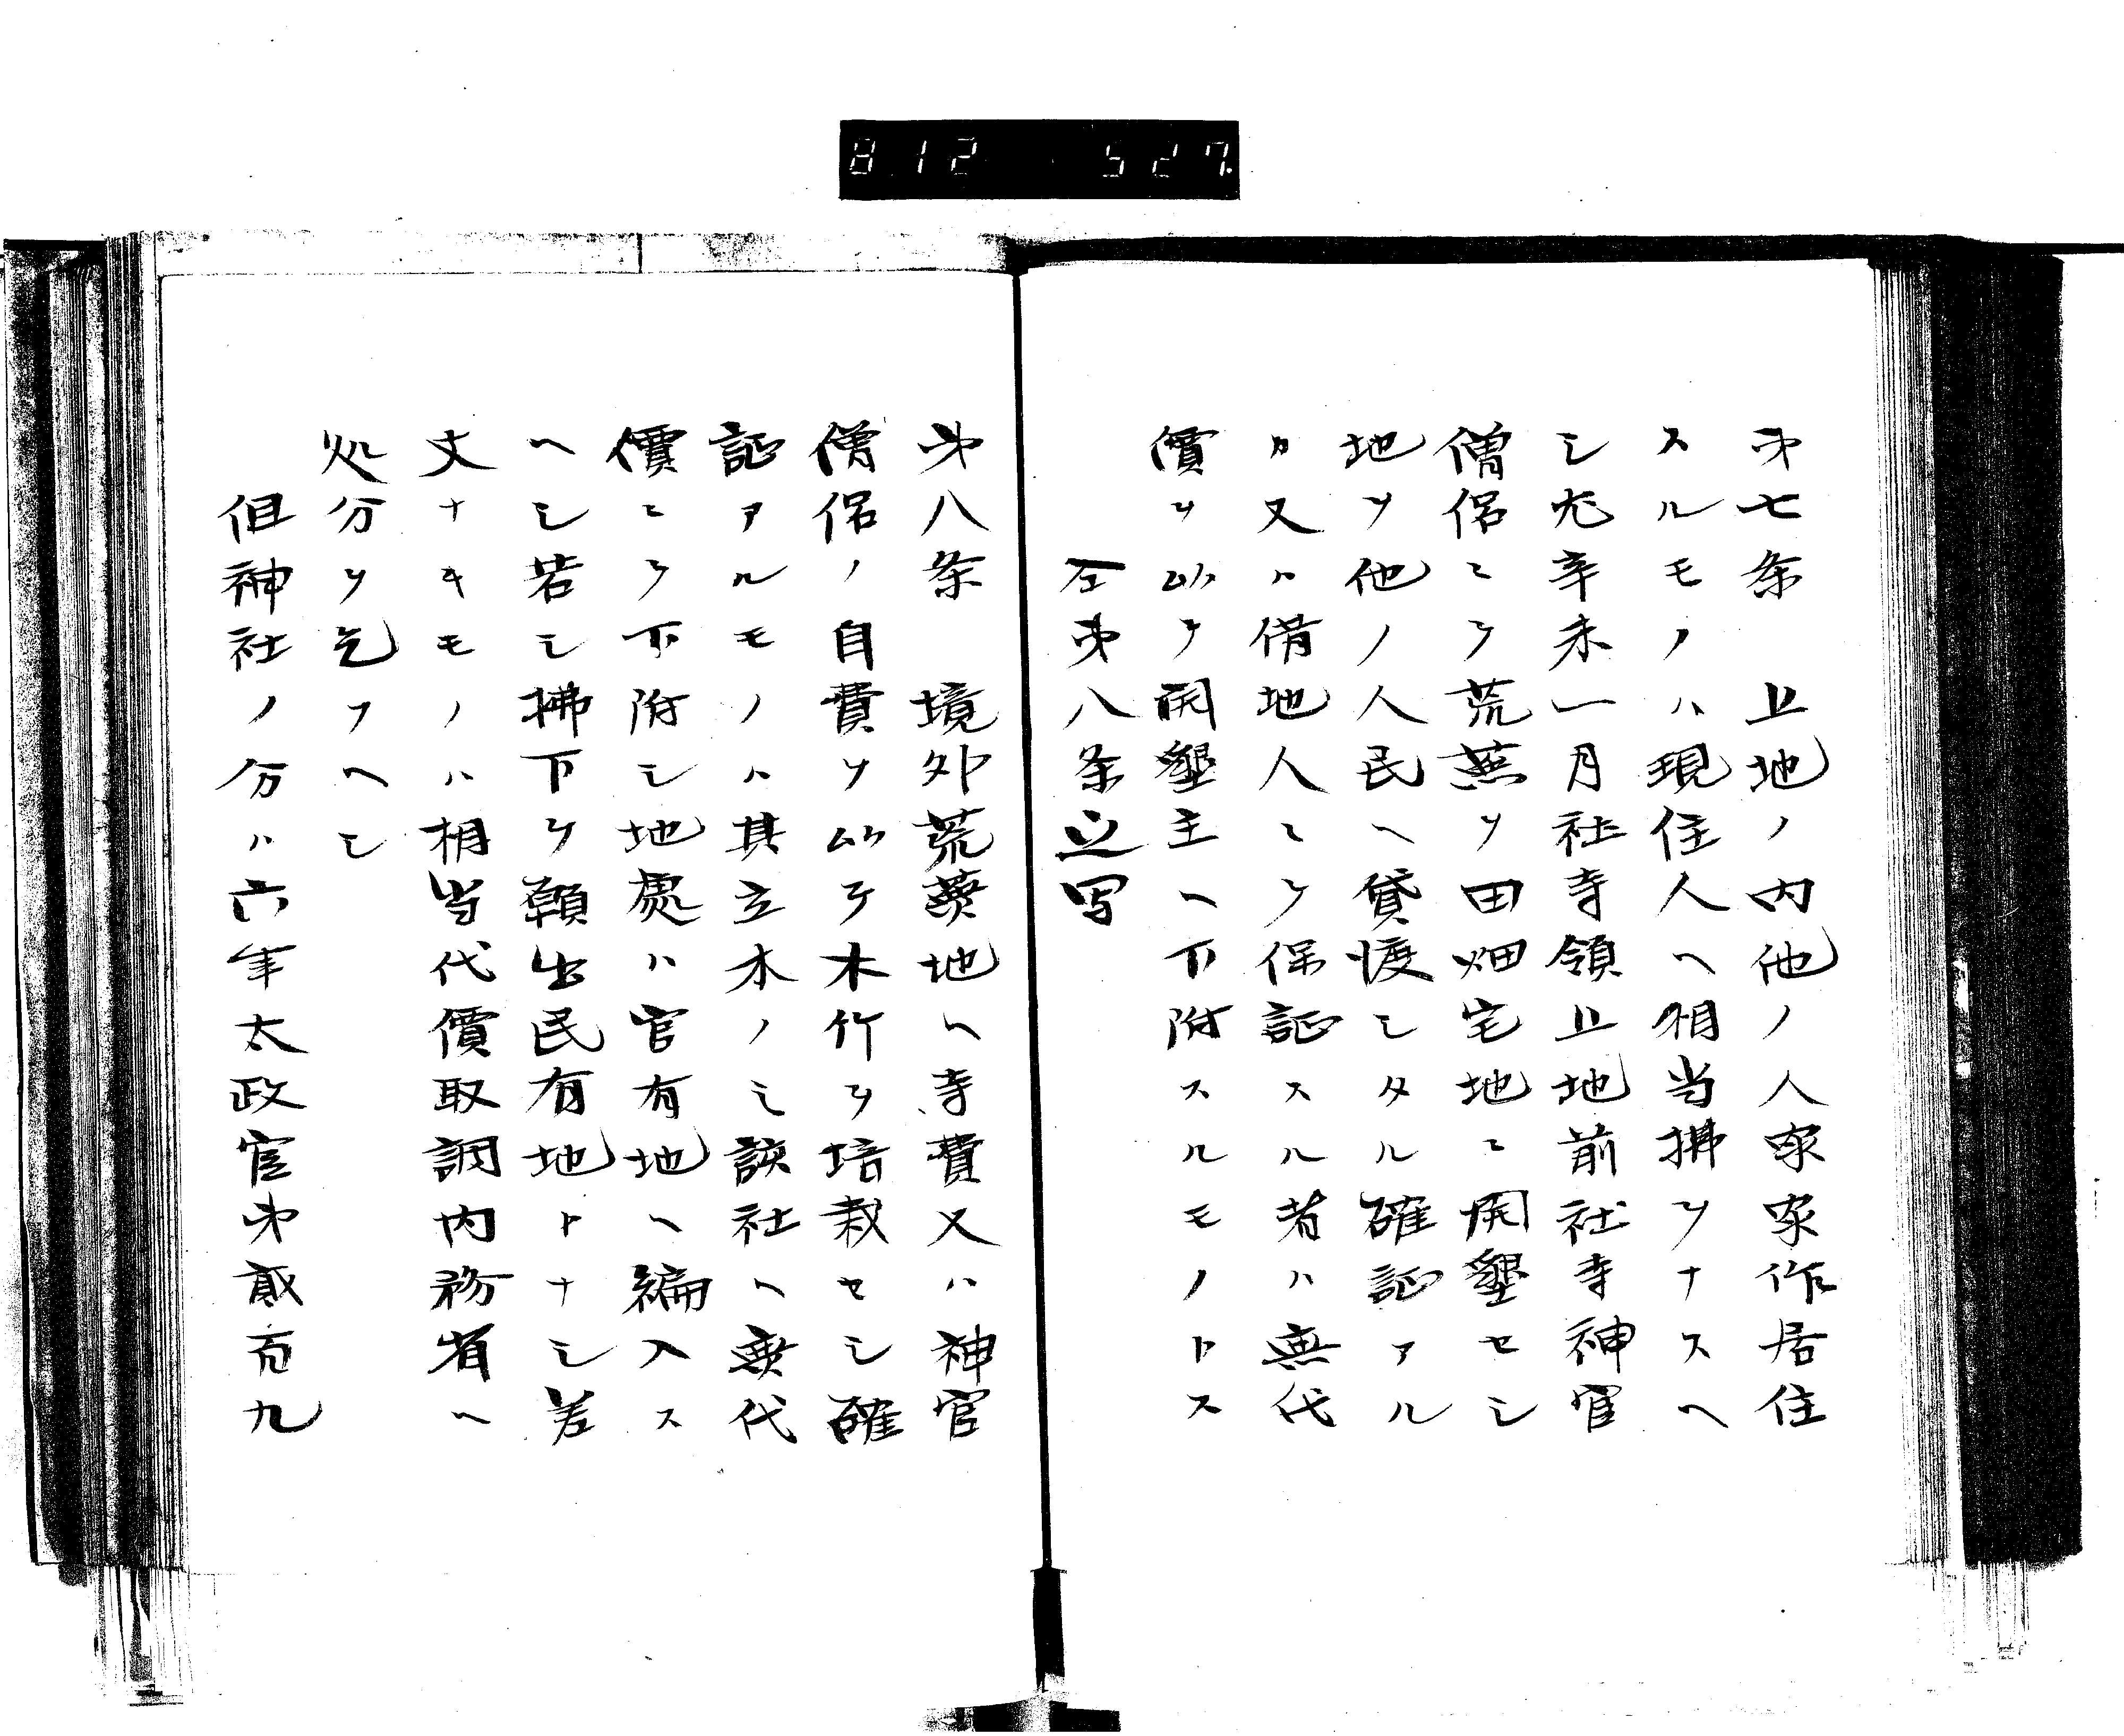 812 527
㐧七条 上地ノ内他ノ人家家作居住
スルモノハ現住人ヘ相当払ヲナスヘ
シ尤辛未一月社寺領上地前社寺神官
僧侶ニテ荒蕪ヲ田畑宅地ニ開墾セシ
地ヲ他ノ人民ヘ貸渡シタル確証アル
カ又ハ借地人ニテ保証スル者ハ無代
價ヲ以テ開墾主ヘ下附スルモノトス
仝㐧八条之写
㐧八条 境外荒蕪地ヘ寺費又ハ神官
僧侶ノ自費ヲ以テ木竹ヲ培栽セシ確
証アルモノハ其立木ノミ該社ヘ無代
價ニテ下附シ地處ハ官有地ヘ編入ス
ヘシ若シ拂下ケ願出民有地トナシ差
丈ナキモノハ相当代價取調内務省ヘ
処分ヲ乞フヘシ
但神社ノ分ハ六年太政官㐧貳百九